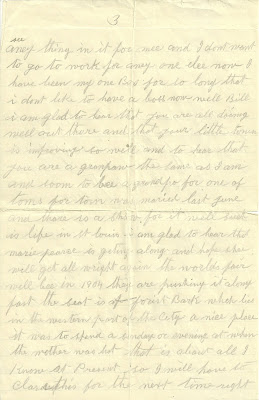 3
see
aney thing in it for mee and I dont want
to go to work for aney one else now I
have been my one Bos for so long that
i dont like to have a boss now well Bill
i am glad to hear that you are all doeing
well out there and that your little town
is improveing so well and to hear that
you are a granpaw the same as I am
and soon to bee a grandpo for one of
toms for tom was maried last june
and there is a show for it well such
is life in St louis i am glad to hear that
marie pearce is geting along and hope she
will get all wright again the worlds fair
will bee in 1904 they are pushing it along
fast the seat is of forist Park which lies
in the western part of the City a nice place
it was to spend a sunday or evening at when
the wether was hot that is about all I
Know at Present so I will have to
Close this for the next time right